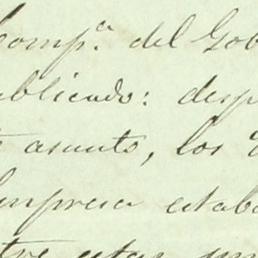 Comp.ª del Gob
ublicado: desp
asunto, los
Empresa estab
tre estas